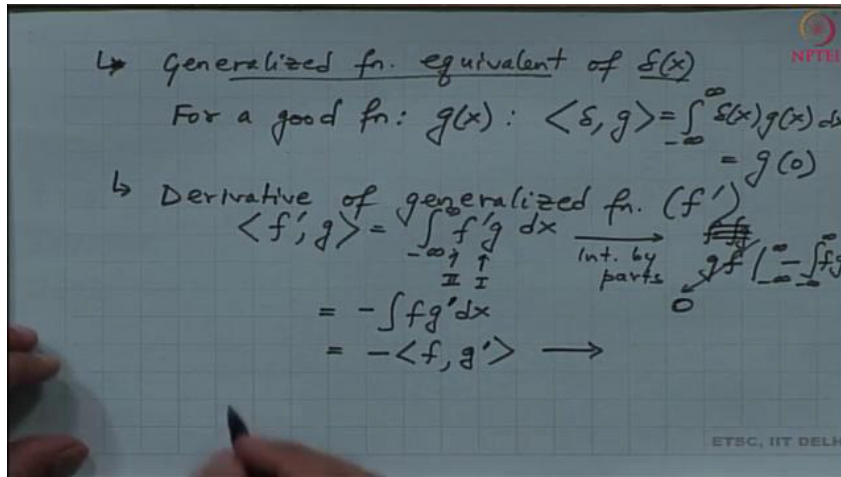 ↳ Generalized fn. equivalent of δ(x)
NPTEL
For a good fn: g(x): <δ, g> = ∫_{-∞}^{∞} δ(x)g(x) dx
= g(0)
↳ Derivative of generalized fn. (f')
<f', g> = ∫_{-∞}^{∞} f'g dx → Int. by parts gf |_{-∞}^{∞} - ∫_{-∞}^{∞} fg
II I
0
= -∫fg'dx
= -<f, g'> →
ETSC, IIT DELH